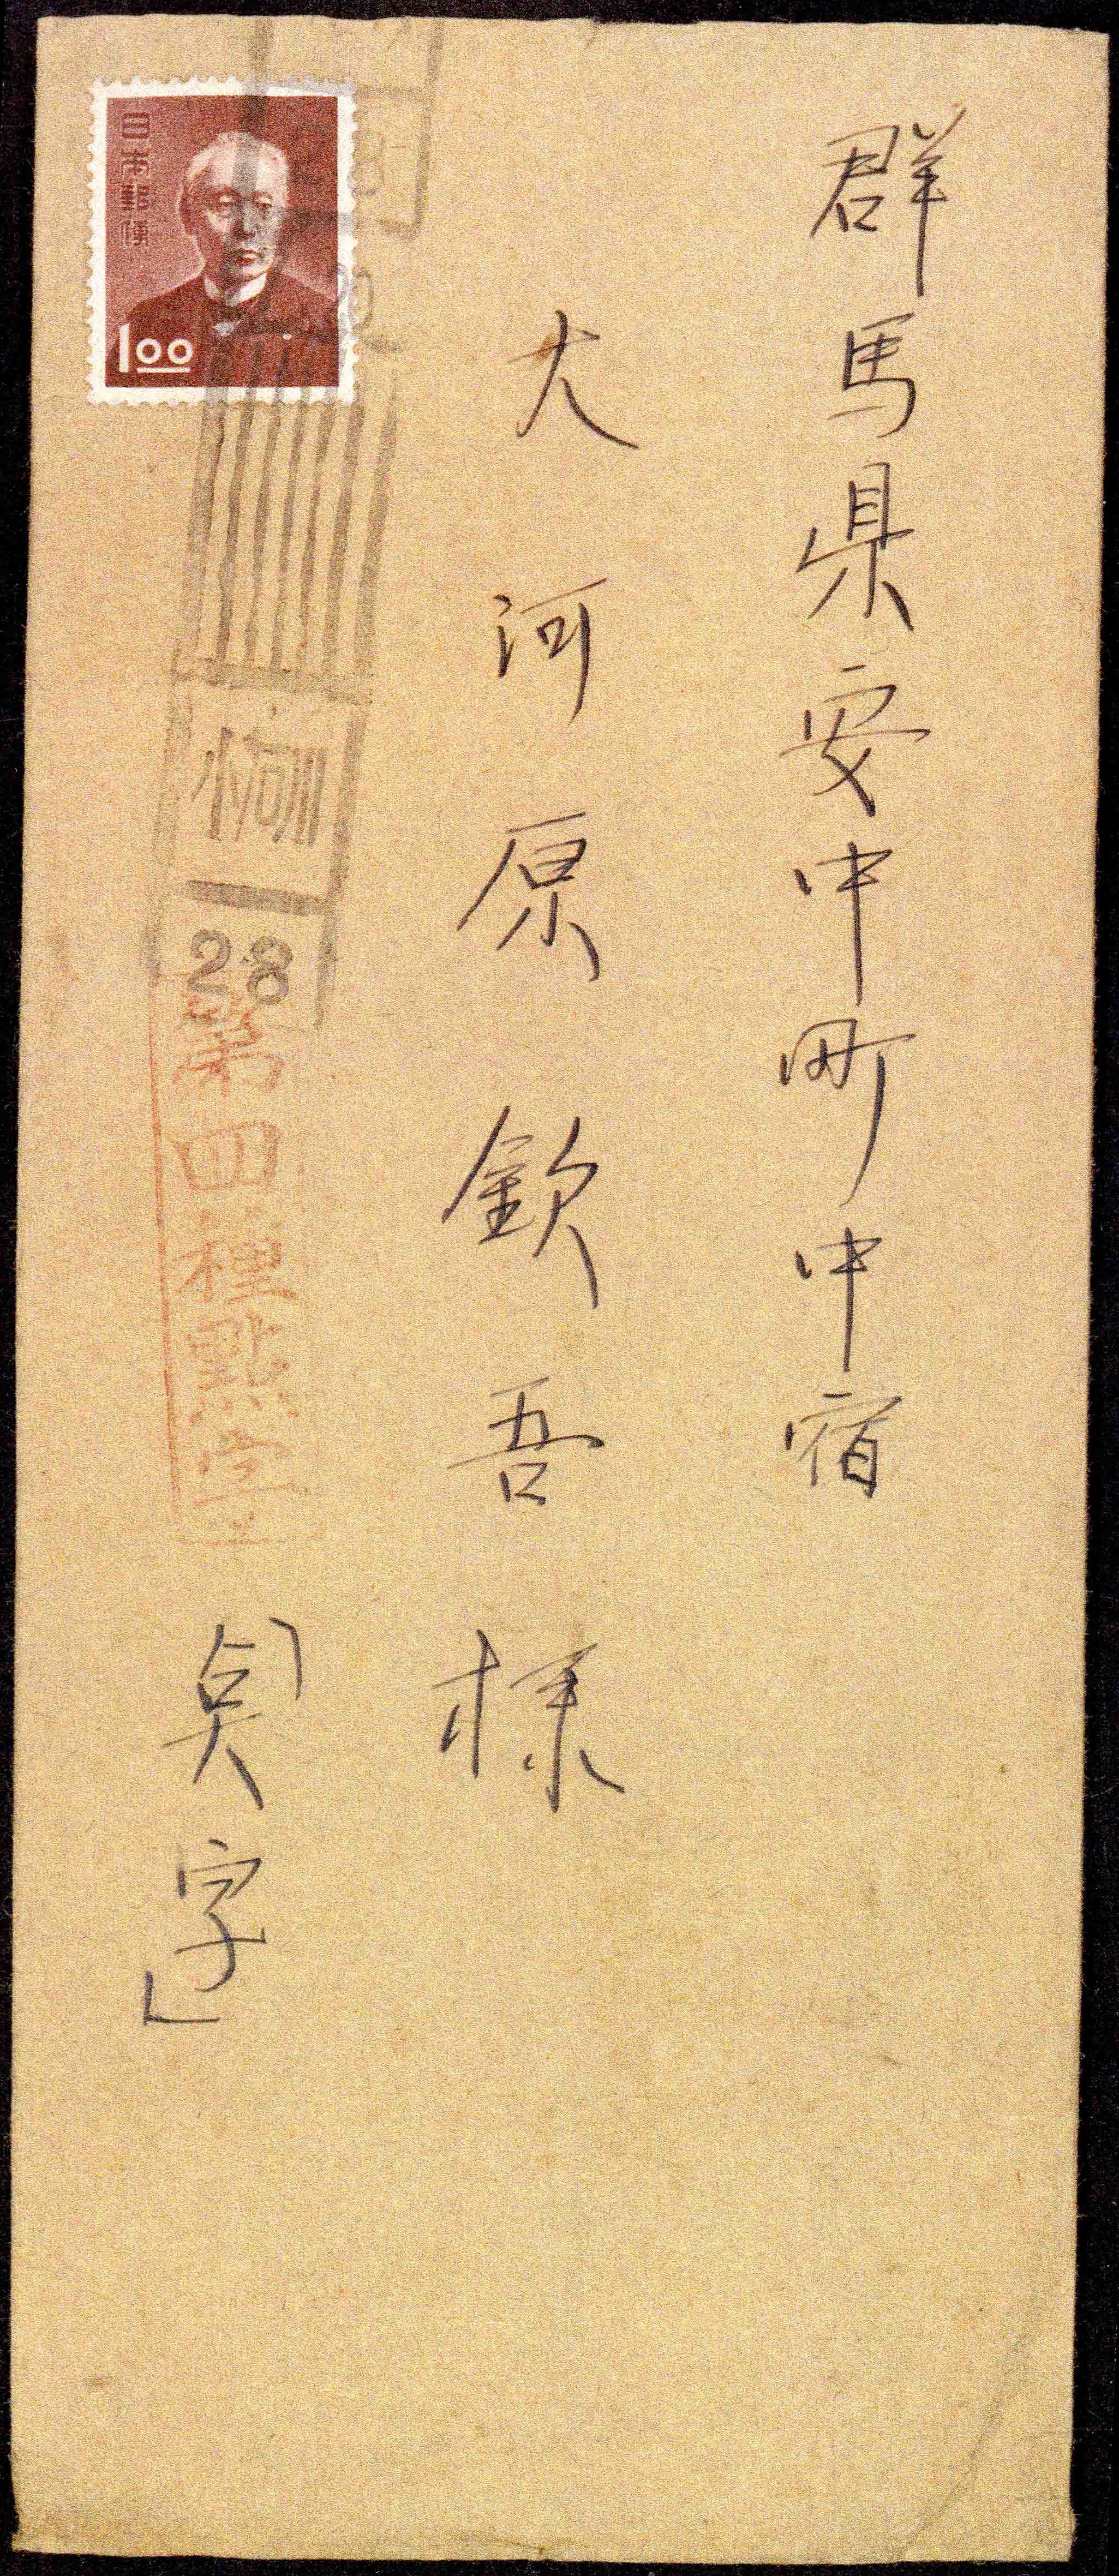 群馬県安中町中宿
大河原欽吾様
日本郵便
1.00
28
第四種點字
「奌字」